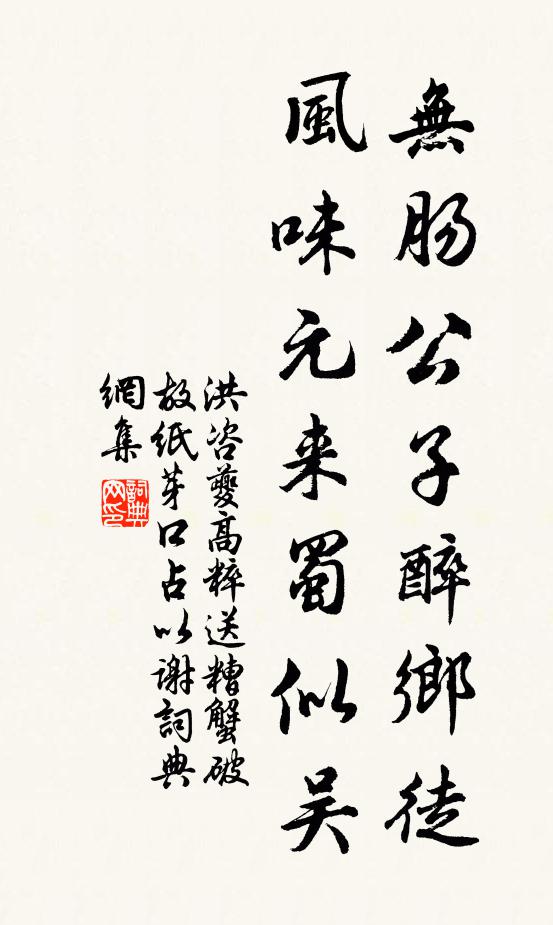 無肠公子醉鄉徒
風味元来蜀似吴
洪咨夔高粹送糟蟹破
故紙芽口占以谢詞典
網集
詞典网印